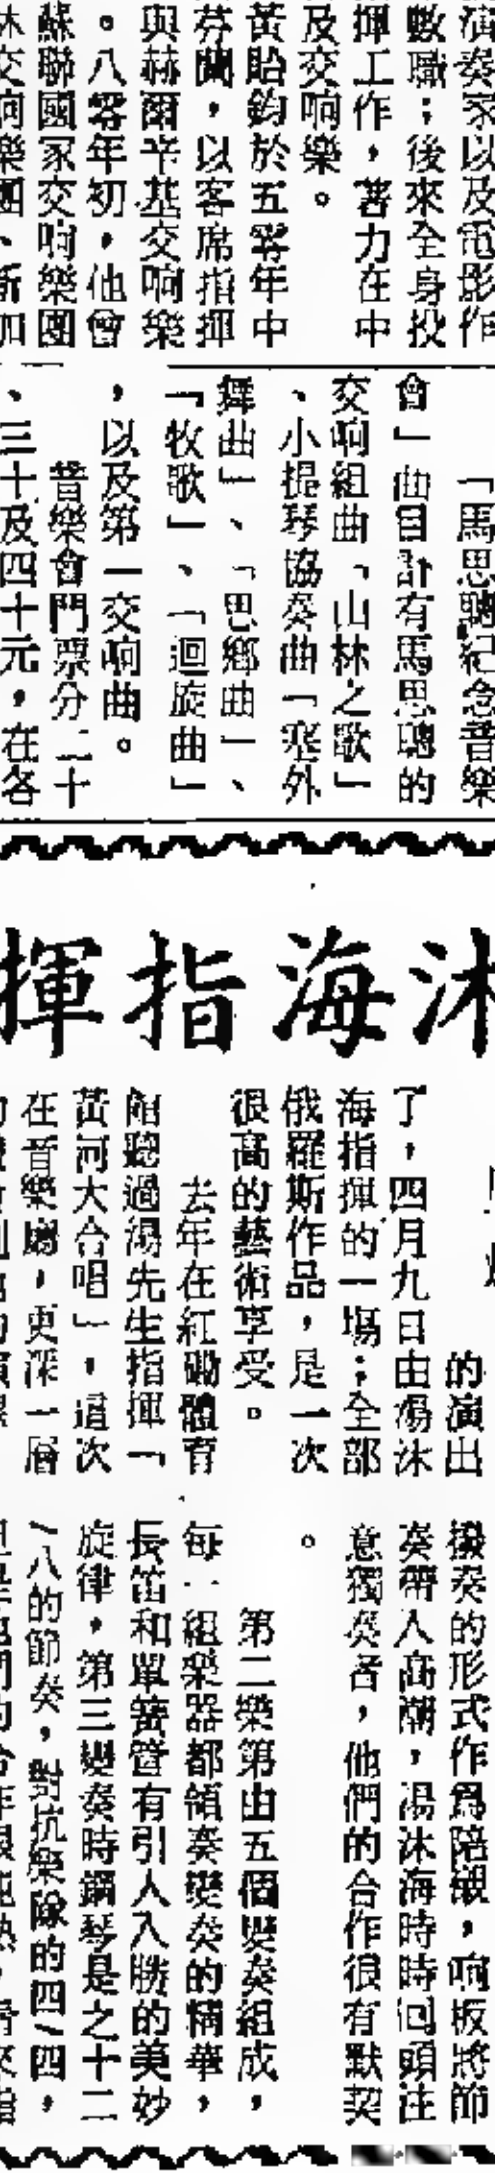 演奏家以及電影作
數職；後來全身投
揮工作，著力在中
及交响樂。
黃貽鈞於五零年中
芬蘭，以客席指揮
與赫爾辛基交响樂
。八零年初，他曾
蘇聯國家交响樂團
林交响樂團、新加
「馬思聰紀念音樂
會」曲目計有馬思聰的
交响組曲「山林之歌」
、小提琴協奏曲「塞外
舞曲」、「思鄉曲」、
「牧歌」、「迴旋曲」
，以及第一交响曲。
音樂會門票分二十
、三十及四十元，在各
沐海指揮
的演出
了，四月九日由湯沐
海指揮的一場；全部
俄羅斯作品，是一次
很高的藝術享受。
去年在紅磡體育
館聽過湯先生指揮「
黃河大合唱」，這次
在音樂廳，更深一層
撥奏的形式作爲陪襯，响板將節
奏帶入高潮，湯沐海時時回頭注
意獨奏者，他們的合作很有默契
。
第二樂第由五個變奏組成，
每一組樂器都領奏變奏的精華，
長笛和單簧管有引人入勝的美妙
旋律，第三變奏時鋼琴是之十二
/八的節奏，對抗樂隊的四/四，